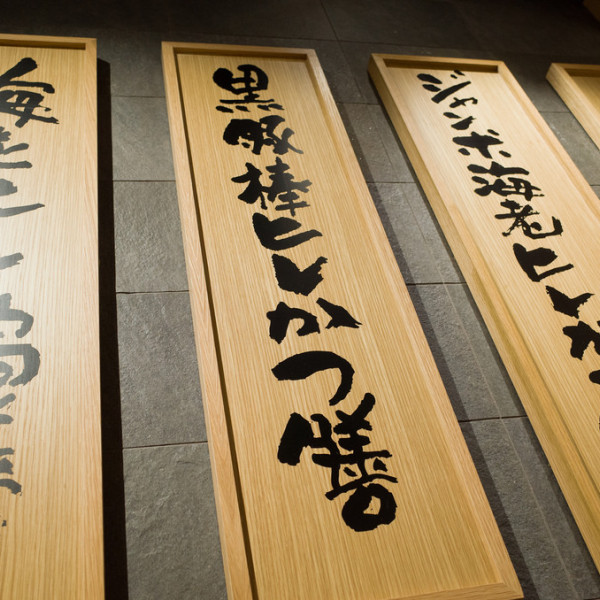 ジャンボ海老ヒレか
黒豚棒ヒレかつ膳
海老ヒレ